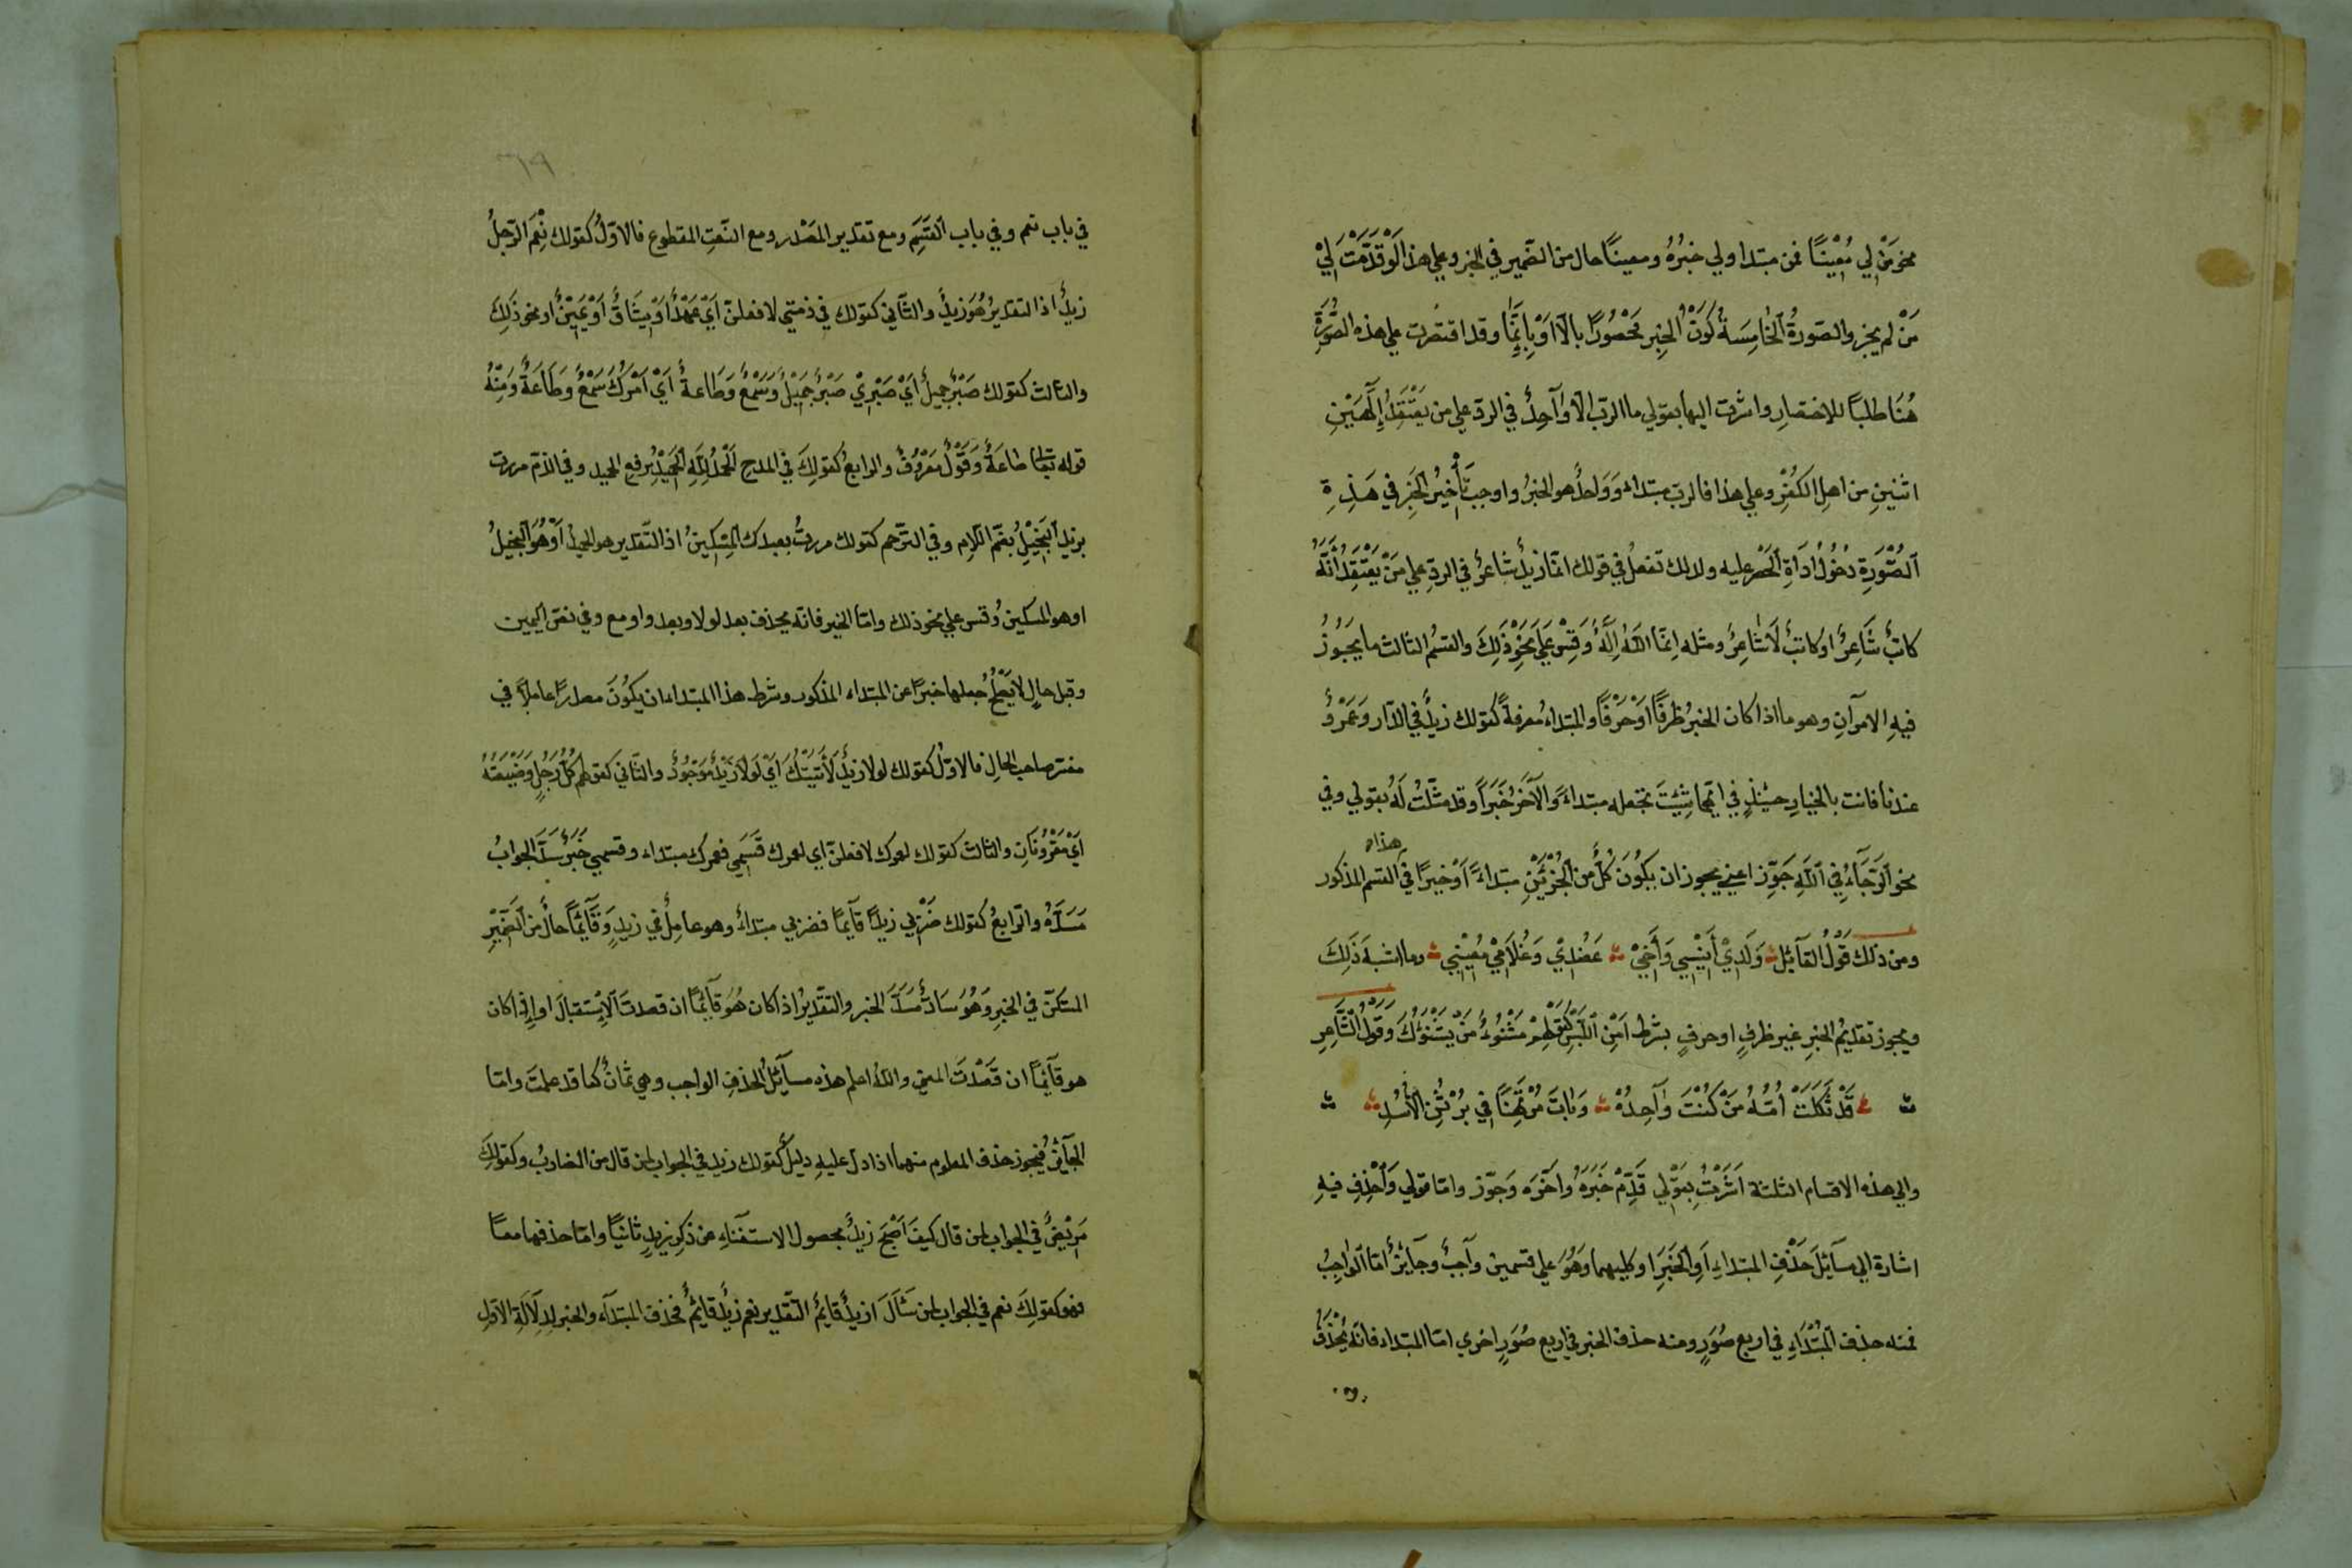 نحو مَنْ لِي مُعِيْنًا فمن مبتدا ولي خبرُهُ ومعينًا حال من الضّمير في الخبر وعلي هذا لَوْ قَدَّمْتَ لِيْ
مَنْ لم يجز والصّورةُ الخامِسَةُ كَوْنُ الخبرِ مَحْصُورًا بالّا اَوْ بِاِنَّمَا وقد اقتصرت علي هذه الصُّوْرَةِ
هُنَا طلبًا للاختصارِ واشرت اليها بقولي ما الربّ الّا وٰاحِدٌ في الردّ علي من يَعْتَقِدُ اِلٰهَيْنِ
اثنينِ من اهلِ الكُفْرِ وعلي هذا فالربّ مبتداء وَوَاحدٌ هو الخبرُ واوجبَ تَأْخِيرُ الخَبَرِ في هَذِهِ
الصُّوْرَةِ دخُولُ اَدَاةِ الحَصْرِ عليه وكذلك تفعلُ في قولك انّما زيدٌ شاعرٌ في الردّ علي مَنْ يَعْتَقِدُ اَنَّهُ
كاتبٌ شَاعِرٌ او كاتبٌ لَا شٰاعِرٌ ومثله اِنَّمَا اللّهُ اِلٰهٌ وَقِسْ عَلَي نَحْوِ ذَلِكَ والقسمُ الثالث ما يَجُوْزُ
فيهِ الامرانِ وهو ما اذا كان الخبرُ ظرفًا اَوْ حَرْفًا والمبتداءُ معرفةً كقولك زيدٌ في الدّار وَعَمْرٌو
عندنا فانت بالخيارِ حينئذٍ في ايّهما شِئْتَ تجعله مبتداءً والآخَرُ خَبَرًا وقد مثّلتُ لَهُ بقولي وفي
هذا
نحو الرَّجَآءُ فِي اللّهِ جَوِّز اعني يجوز ان يَكُوْنَ كُلٌّ من الجُزْئَيْنِ مبتداءً اَوْ خبرًا في القسم المذكور
ومن ذلك قَوْلُ القآئِل وَلَدِيْ أَنِيْسِي وَأَخِيْ عَضُدِيْ وَغُلَامِيْ مُعِيْنِي وما اشبهَ ذَلِكَ
ويجوز تقديمُ الخبرِ غيرَ ظرفٍ او حرفٍ بشرط اَمْنِ اللَّبْسِ كَقَوْلِهِمْ مَشْنُوءٌ مَنْ يَشْنَؤُكَ وَقَوْلُ الشَّاعِرِ
قَدْ ثَكِلَتْ اُمُّهُ مَنْ كُنْتَ وٰاحِدَهُ وَبٰاتَ مُنْتَهِبًا فِي بُرْثُنِ الأَسَدِ
والي هذه الاقسام الثلثة اَشَرْتُ بِقَوْلِي قَدِّمْ خَبَرَهُ وَاَخِّرَه وَجَوِّز وامّا قولي وَاحْذِف فِيهِ
اشارة الي مسآئلَ حَذْفِ المبتداءِ اَوِ الخَبَرِ او كليهما وَهُوَ علي قسمين وآجبٌ وجآئزٌ امّا الوٰاجِبُ
فمنه حذف المُبْتَدَاءِ في اربع صُوَرٍ ومنه حذف الخبر في اربع صُوَرٍ اخري امّا المبتداء فانّه يُحْذَفُ
في
في باب نعم وفي باب القَسَمِ ومع تقدير المَصْدرِ ومع النّعتِ المقطوع فالاوّلُ كقولك نِعْمَ الرّجلُ
زيدٌ اذ التقديرُ هُوَ زيدٌ والثّاني كقولك في ذمّتي لافعلنّ اَيْ عَهْدٌ اَوْ مِيْثَاقٌ اَوْ يَمِيْنٌ او نحو ذَلِكَ
والثالث كقولك صَبْرٌ جميلٌ اَيْ صَبْرِيْ صَبْرٌ جَمِيْلٌ وَسَمْعٌ وَطَاعةٌ اَيْ اَمْرُكَ سَمْعٌ وَطَاعَةٌ وَمِنْهُ
قوله تعالى طاعَةٌ وَقَوْلٌ مَعْرُوْفٌ والرابعُ كقولِكَ في المدح الحَمْدُ لِلّهِ الحَمِيْدُ برفع الحميد وفي الذمّ مررت
بزيدٍ البَخِيْلُ بضمّ اللّام وفي الترحّم كقولك مررتُ بعبدك المِسْكِينُ اذ التّقدير هو الحميدُ اَوْ هُوَ البخيلُ
او هو المسكينُ وقس علي نحو ذلك وامّا الخبر فانّه يحذف بعد لولا وبعد واو مع وفي نصّ اليمين
وقبل حالٍ لا يَصْلُحُ جعلها خبرًا عن المبتداء المذكور وشرط هذا المبتداء ان يكُوْنَ مصدرًا عاملًا في
مفسّر صاحب الحالِ فالاوّلُ كقولك لولا زيدٌ لَأَتَيْتُكَ اَيْ لَوْلَا زَيْدٌ مَوْجُوْدٌ والثّاني كقولهم كُلُّ رَجُلٍ وَضَيْعَتُهُ
اَيْ مَقْرُونَانِ والثالث كقولك لعمرك لافعلنّ اي لعمرك قَسَمِي فعمرك مبتداء وقسمي خَبَرٌ سَدَّ الجوابُ
مَسَدَّهُ والرّابعُ كقولك ضَرْبِي زيدًا قآئِمًا فضربي مبتداءٌ وهو عاملٌ في زيدٍ وَقَآئِمًا حالٌ من الضَّمِيْرِ
المستكنّ في الخبرِ وَهُوَ سَادٌّ مَسَدَّ الخبر والتقدير اذا كان هُوَ قآئِمًا ان قصدتَ الاِسْتقبالَ او اِذْ كان
هو قآئِمًا ان قَصَدْتَ المضيَّ واللّهُ اعلم هذه مسآئلُ الحذفِ الواجب وهي ثمانٌ كما قد علمتَ وامّا
الجآئزُ فيجوز حذف المعلوم منهما اذا دلّ عليهِ دليلٌ كقولك زيد في الجواب لمن قال من الضّاربُ وكقولِكَ
مَرِيْضٌ في الجواب لمن قال كيفَ اَصْبَحَ زيدٌ لحصول الاستغنآءِ عن ذكرِ زيدٍ ثانيًا وامّا حذفهما معًا
فهو كقولِكَ نعم في الجواب لمن سَئَألَ ازيدٌ قايمٌ التّقدير نعم زيدٌ قايمٌ فحذف المبتدآء والخبر لِدلَالَةِ الاوّلِ